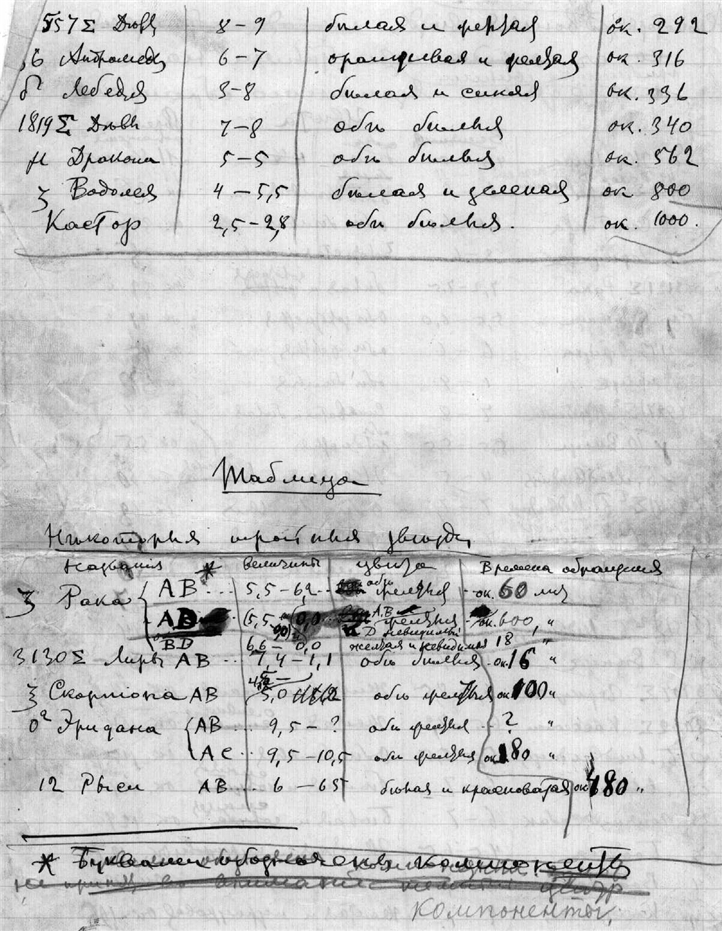 557 Σ Дѣвы 8 – 9 бѣлая и желтая ок. 292
Андромеды 6 – 7 оранжевая и желтая ок. 316
δ Лебедя 3 – 8 бѣлая и синяя ок. 336
1819 Σ Дѣвы 7 – 8 обѣ бѣлыя ок. 340
μ Дракона 5 – 5 обѣ бѣлыя ок. 562
ζ Водолея 4 – 5,5 бѣлая и зеленая ок 800
Кастор 2,5 – 2,8 обѣ бѣлыя. ок. 1000.
Таблица
Нѣкоторыя тройныя звѣзды
Названія * величины цвѣта Времена обращения
ζ Рака AB ... 5,5 – 6,2 обѣ желтыя ок. 60 лѣт
AD (5,5 – 0,0 A,B желтыя D невидимы ок. 600 „
BD 6,6 – 0,0 желтая и невидимая 18 „
3130 Σ Лиры AB ... 7,4 – 11,1 обѣ бѣлыя ок 16 „
ξ Скорпіона AB 5,0 обѣ желтыя ок 100 „
о² Эридана AB ... 9,5 – ? обѣ желтыя ? „
AC ... 9,5 – 10,5 обѣ желтыя ок 180 „
12 Рыси AB ... 6 – 6,5 бѣлая и красноватая ок 480 „
* Буквами компоненты
не принять во внимание
компоненты,